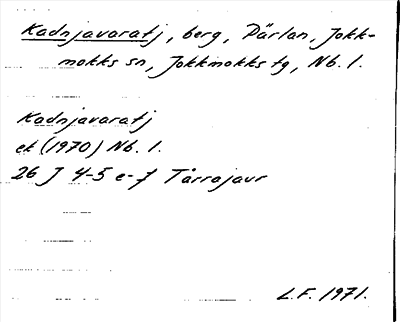 Kadnjavaratj, berg, Pärlan, Jokk-
mokks sn, Jokkmokks tg, Nb. l.
Kadnjavaratj
ek (1970) Nb. l.
26 J 4-5 e-f Tårrajaur
L.F. 1971.